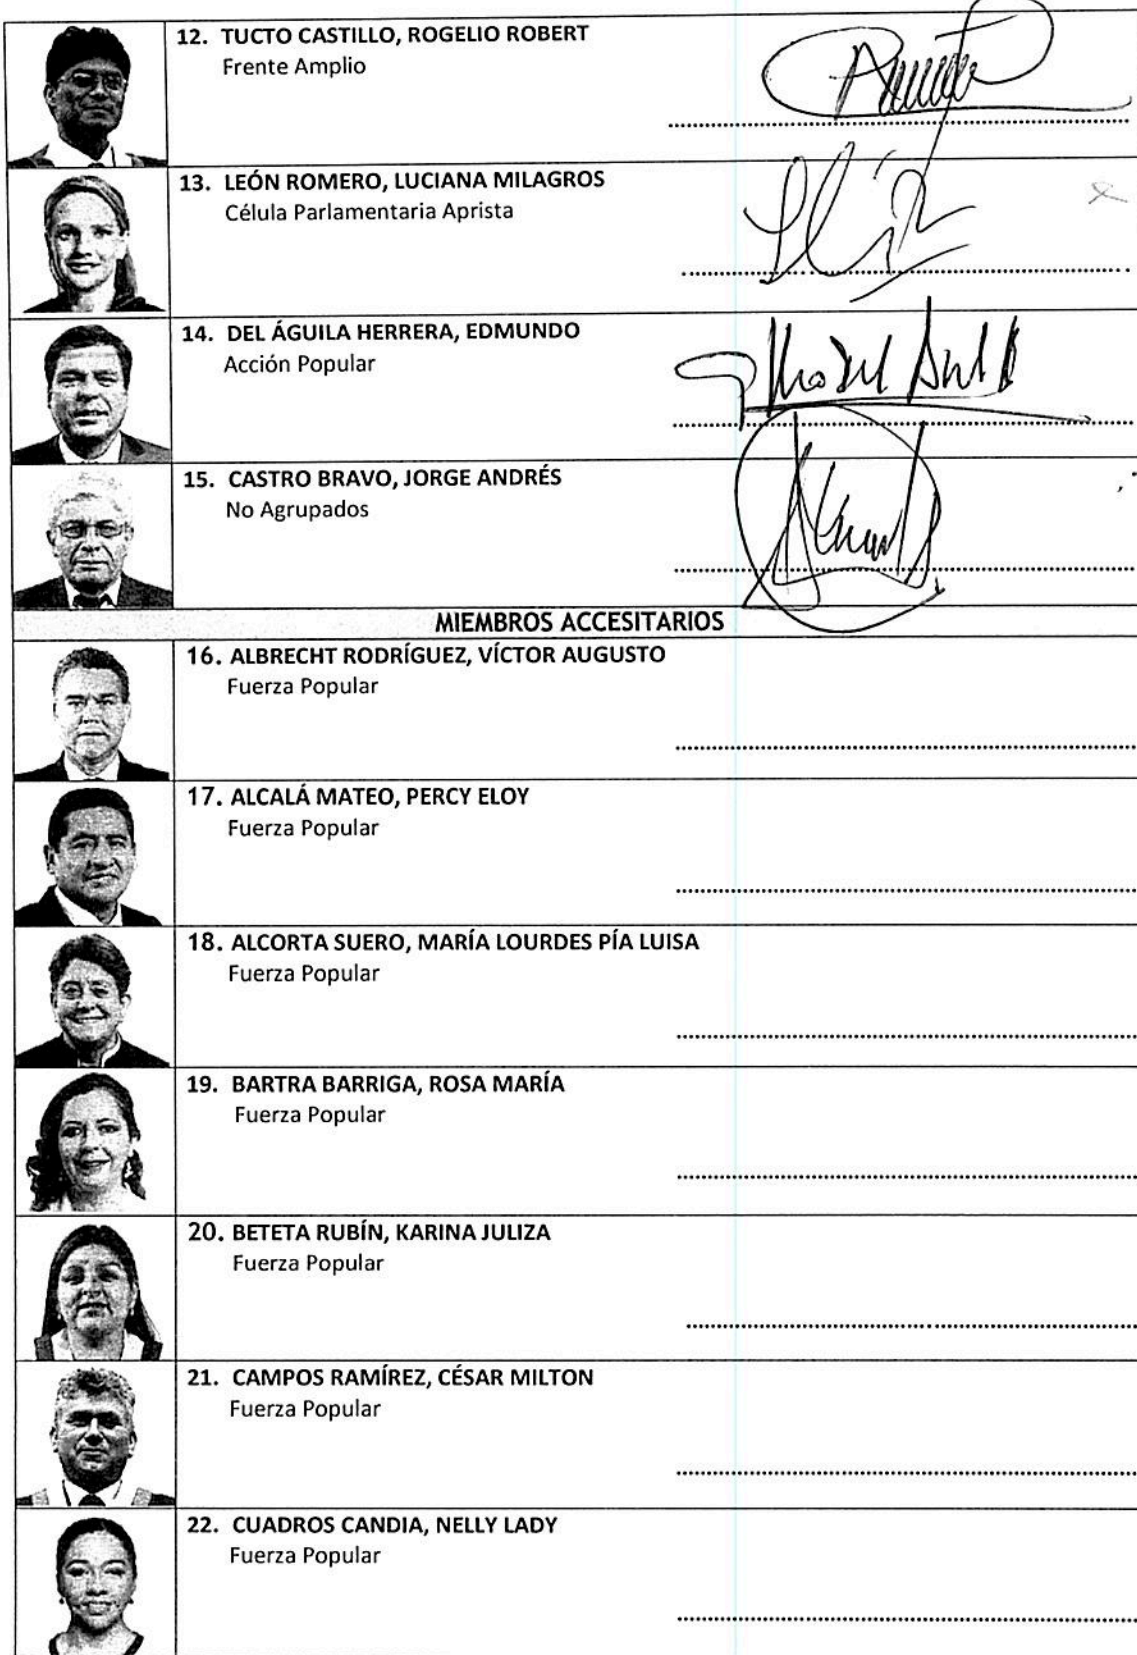 12. TUCTO CASTILLO, ROGELIO ROBERT
Frente Amplio
13. LEÓN ROMERO, LUCIANA MILAGROS
Célula Parlamentaria Aprista
14. DEL ÁGUILA HERRERA, EDMUNDO
Acción Popular
15. CASTRO BRAVO, JORGE ANDRÉS
No Agrupados
MIEMBROS ACCESITARIOS
16. ALBRECHT RODRÍGUEZ, VÍCTOR AUGUSTO
Fuerza Popular
17. ALCALÁ MATEO, PERCY ELOY
Fuerza Popular
18. ALCORTA SUERO, MARÍA LOURDES PÍA LUISA
Fuerza Popular
19. BARTRA BARRIGA, ROSA MARÍA
Fuerza Popular
20. BETETA RUBÍN, KARINA JULIZA
Fuerza Popular
21. CAMPOS RAMÍREZ, CÉSAR MILTON
Fuerza Popular
22. CUADROS CANDIA, NELLY LADY
Fuerza Popular